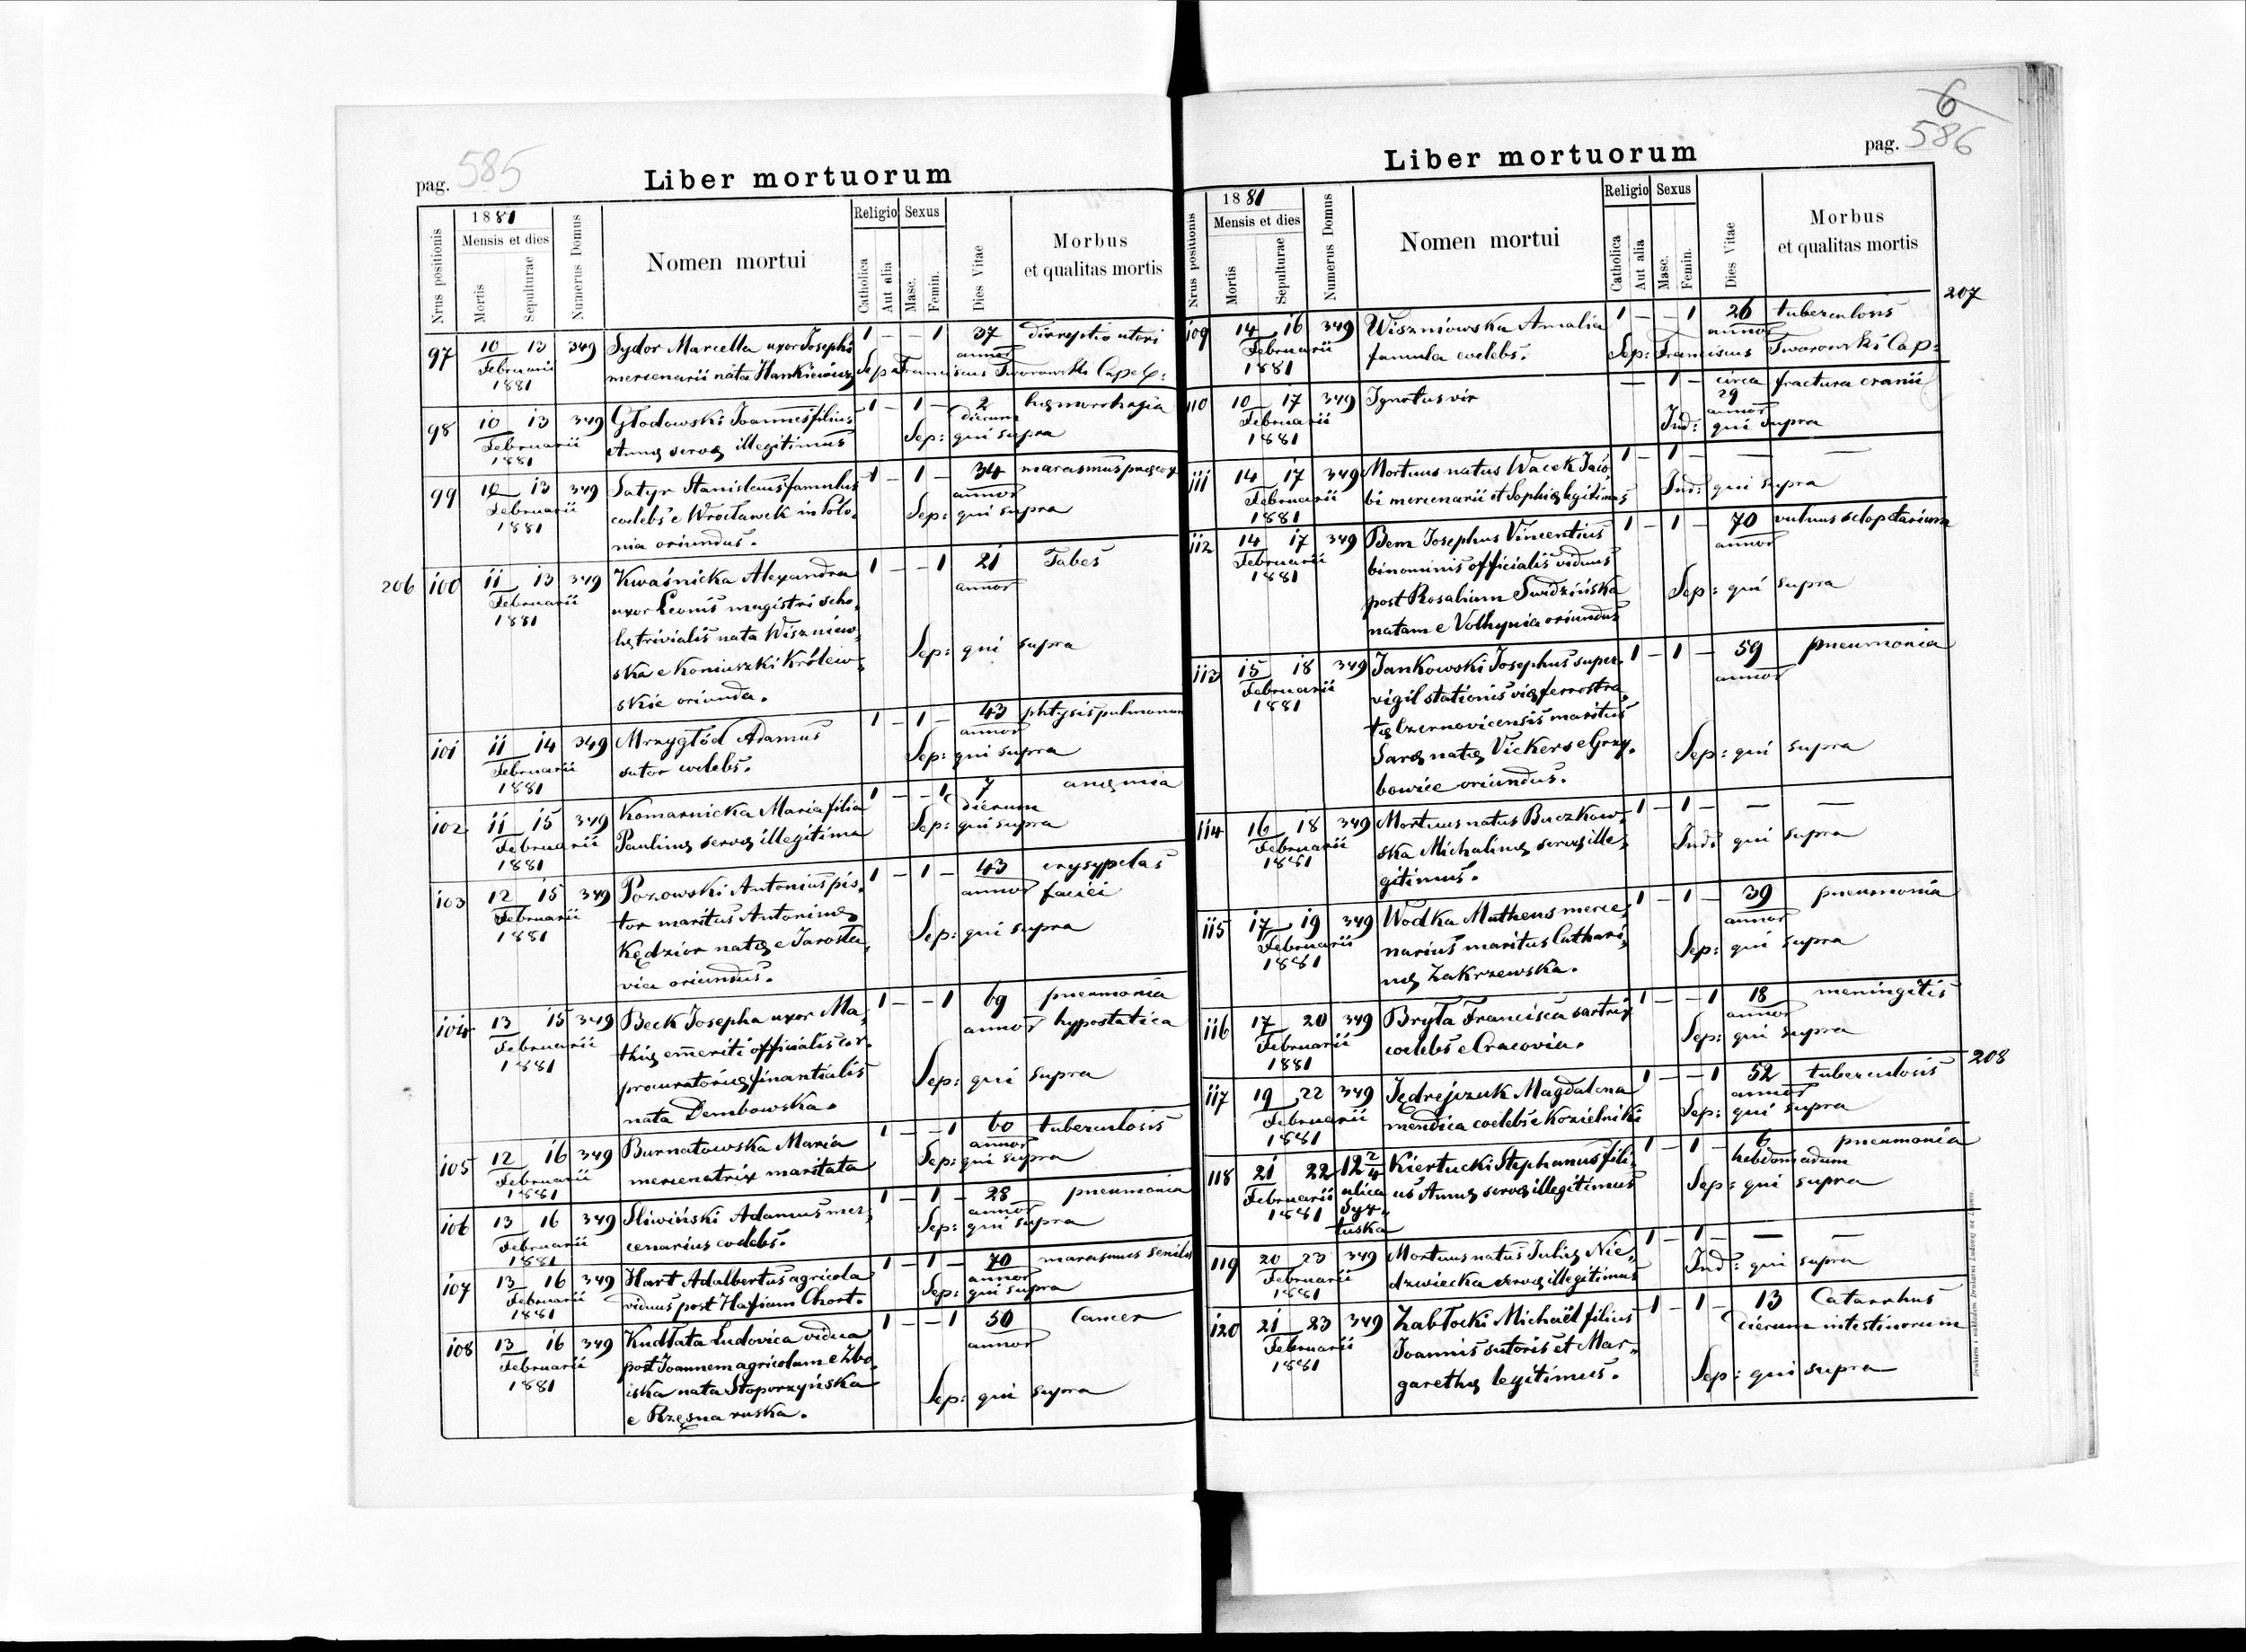 585
pag.
Liber mortuorum
Nrus positionis
1881
Mensis et dies
Mortis
Sepulturae
Numerus Domus
Nomen mortui
Religio
Catholica
Aut alia
Sexus
Masc.
Femin.
Dies Vitae
Morbus
et qualitas mortis
97 10 13 349 Sydor Marcella uxor Josephi 1 — — 1 37 dirreptio uteri
Februarii annor
1881 mercenarii nata Hankiewicz Sep: Franciscus Tworowski Capel:
98 10 13 349 Głodowski Joannes filius 1 — 1 — 2 hęmorrhagia
Februarii dierum
1881 Annę servę illegitimus Sep: qui supra
99 10 13 349 Satyr Stanislaus famulus 1 — 1 — 34 marasmus pręcox
Februarii annor
1881 coelebs e Wrocławek in Polo- Sep: qui supra
nia oriundus.
206 100 11 13 349 Kwaśnicka Alexandra 1 — — 1 21 Tabes
Februarii annor
1881 uxor Leonis magistri scho-
lę trivialis nata Wiszniew-
ska e Koniuszki Królew- Sep: qui supra
skie oriunda.
101 11 14 349 Mrzygłód Adamus 1 — 1 — 43 phtysis pulmonum
Februarii annor
1881 sutor coelebs. Sep: qui supra
102 11 15 349 Komarnicka Maria filia 1 — — 1 7 anęmia
Februarii dierum
1881 Paulinę servę illegitima Sep: qui supra
103 12 15 349 Pozowski Antonius pis- 1 — 1 — 43 erysypelas
Februarii annor faciei
1881 tor maritus Antoninę
Kędzior natę e Jarosła- Sep: qui supra
via oriundus.
104 13 15 349 Beck Josepha uxor Ma- 1 — — 1 69 pneumonia
Februarii annor hypostatica
1881 thię emeriti officialis cęr.
procuratorię finantialis Sep: qui supra
nata Dembowska.
105 12 16 349 Burnatowska Maria 1 — — 1 60 tuberculosis
Februarii annor
1881 mercenatrix maritata Sep: qui supra
106 13 16 349 Sliwiński Adamus mer- 1 — 1 — 28 pneumonia
Februarii annor
1881 cenarius coelebs. Sep: qui supra
107 13 16 349 Hart Adalbertus agricola 1 — 1 — 70 marasmus senilis
Februarii annor
1881 viduus post Haxiam Chort. Sep: qui supra
108 13 16 349 Kudłata Ludovica vidua 1 — — 1 50 Cancer
Februarii annor
1881 post Joannem agricolam e Zbo-
iska nata Stoporzyńska Sep: qui supra
e Rzęsna ruska.
6
586
pag.
Liber mortuorum
Nrus positionis
1881
Mensis et dies
Mortis
Sepulturae
Numerus Domus
Nomen mortui
Religio
Catholica
Aut alia
Sexus
Masc.
Femin.
Dies Vitae
Morbus
et qualitas mortis
109 14 16 349 Wiszniowska Amalia 1 — — 1 26 tuberculosis 207
Februarii annor
1881 famula coelebs. Sep: Franciscus Tworowski Cap:
110 10 17 349 Ignotus vir — 1 — circa 29 fractura cranii
Februarii annor
1881 Ind: qui supra
111 14 17 349 Mortuus natus Wacek Jacó- 1 — 1 — — —
Februarii
1881 bi mercenarii et Sophię legitimus Ind: qui supra
112 14 17 349 Bem Josephus Vincentius 1 — 1 — 70 vulnus sclopetarium
Februarii annor
1881 binominis officialis viduus
post Rosaliam Sudzińska Sep: qui supra
natam e Volhynia oriundus
113 15 18 349 Jankowski Josephus super- 1 — 1 — 59 pneumonia
Februarii annor
1881 vigil stationis vię ferrostra-
tę Czernovicensis maritus
Sarę natę Vickers e Grzy- Sep: qui supra
bowice oriundus.
114 16 18 349 Mortuus natus Buczkow- 1 — 1 — — —
Februarii
1881 ska Michalinę servę ille- Ind: qui supra
gitimus.
115 17 19 349 Wodka Matheus merce- 1 — 1 — 39 pneumonia
Februarii annor
1881 narius maritus Cathari- Sep: qui supra
nę Zakrzewska.
116 17 20 349 Bryła Francisca sartrix 1 — — 1 18 meningitis
Februarii annor
1881 coelebs e Cracovia. Sep: qui supra
117 19 22 349 Jędrejczuk Magdalena 1 — — 1 52 tuberculosis 208
Februarii annor
1881 mendica coelebs e Kozielniki Sep: qui supra
118 21 22 12 2/4 Kiertucki Stephanus fili- 1 — 1 — 6 pneumonia
Februarii ulica hebdomadum
1881 Syx- us Annę servę illegitimus Sep: qui supra
tuska
119 20 23 349 Mortuus natus Julię Nie- 1 — 1 — — —
Februarii
1881 dzwiecka servę illegitimus Ind: qui supra
120 21 23 349 Zabłocki Michaël filius 1 — 1 — 13 Catarrhus
Februarii dierum intestinorum
1881 Joannis sutoris et Mar-
garethę legitimus. Sep: qui supra